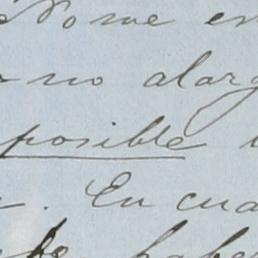 No me en
no alarg
posible
. En cua
haber